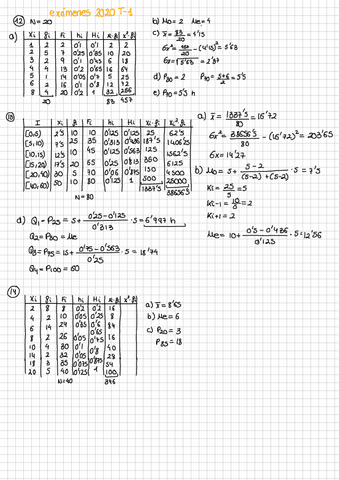 exámenes 2020 T-1
12 N=20
b) Mo=2 Me=4
a) Xi fi Fi hi Hi xi·fi x²·fi
1 2 2 0'1 0'1 2 2
2 5 7 0'25 0'35 10 20
3 2 9 0'1 0'45 6 18
4 4 13 0'2 0'65 16 64
5 1 14 0'05 0'7 5 25
6 2 16 0'1 0'8 12 72
8 4 20 0'2 1 32 256
20 83 457
c) x̄ = 83/20 = 4'15
d) P20=2 P70 = 5+6/2 = 5'5
e) P70=5'5 h
13 I xi fi Fi hi Hi xi·fi xi²·fi
[0,5) 2'5 10 10 0'125 0'125 25 62'5
[5,10) 7'5 25 35 0'313 187'5
[10,15) 12'5 10 45 0'125 0'563 125 1562'5
17'5 20 65 0'25 0'813 350 6125
[20,40) 30 5 70 150 4500
[40,60) 50 10 80 0'125 1 500 25000
N=80 1337'5 38656'5
a) x̄ = 1337'5/80 = 16'72
6x² = 38656'5/80 - (16'72)² = 203'65
6x = 14'27
b) Mo = 5 + 5-2/(5-2)+(5-2) · 5 = 7'5
Ki = 25/5 = 5
Ki-1 = 10/5 = 2
Ki+1 = 2
Me = 10 + 0'5-0'436/0'125 · 5 = 12'56
d) Q1 = P25 = 5 + 0'25-0'125/0'313 · 5 = 6'997 h
Q2 = P50 = Me
Q3 = P75 = 15 + 0'75-0'563/0'25 · 5 = 18'74
Q4 = P100 = 60
14 Xi fi Fi hi Hi xi·fi
2 8 8 0'2 0'2 16
4 2 10 0'05 0'25 8
6 14 24 0'35 0'6 84
8 2 26 0'05 0'65 16
10 4 30 0'1 0'75 40
14 2 32 0'05 0'8 28
18 3 35 0'075 0'875 54
20 5 40 0'125 1 100
N=40 346
a) x̄ = 8'65
b) Me = 6
c) P20 = 3
P85 = 18